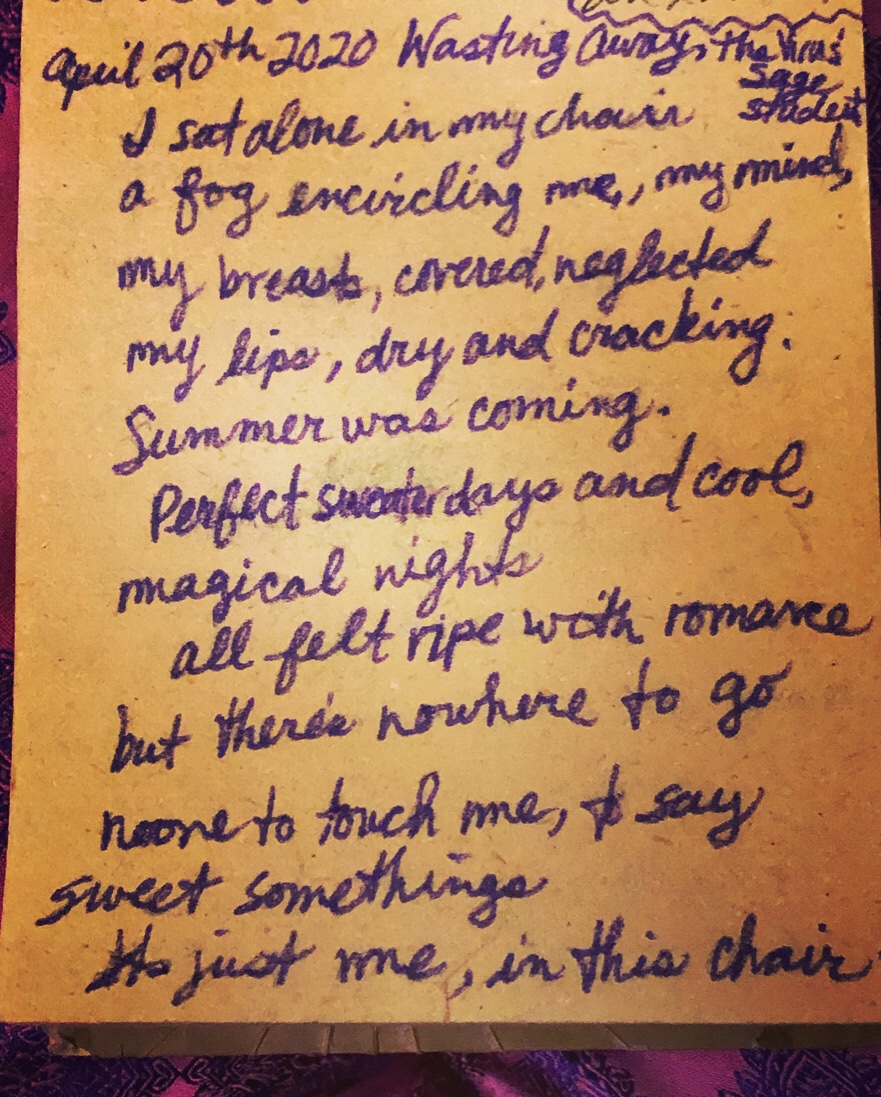 April 20th 2020 Wasting Away, The Virus'
Sage
student
I sat alone in my chair
a fog encircling me, my mind,
my breasts, covered, neglected
my lips, dry and cracking.
Summer was coming.
Perfect sweater days and cool,
magical nights
all felt ripe with romance
but there's nowhere to go
noone to touch me, & say
sweet somethings
Its just me, in this chair